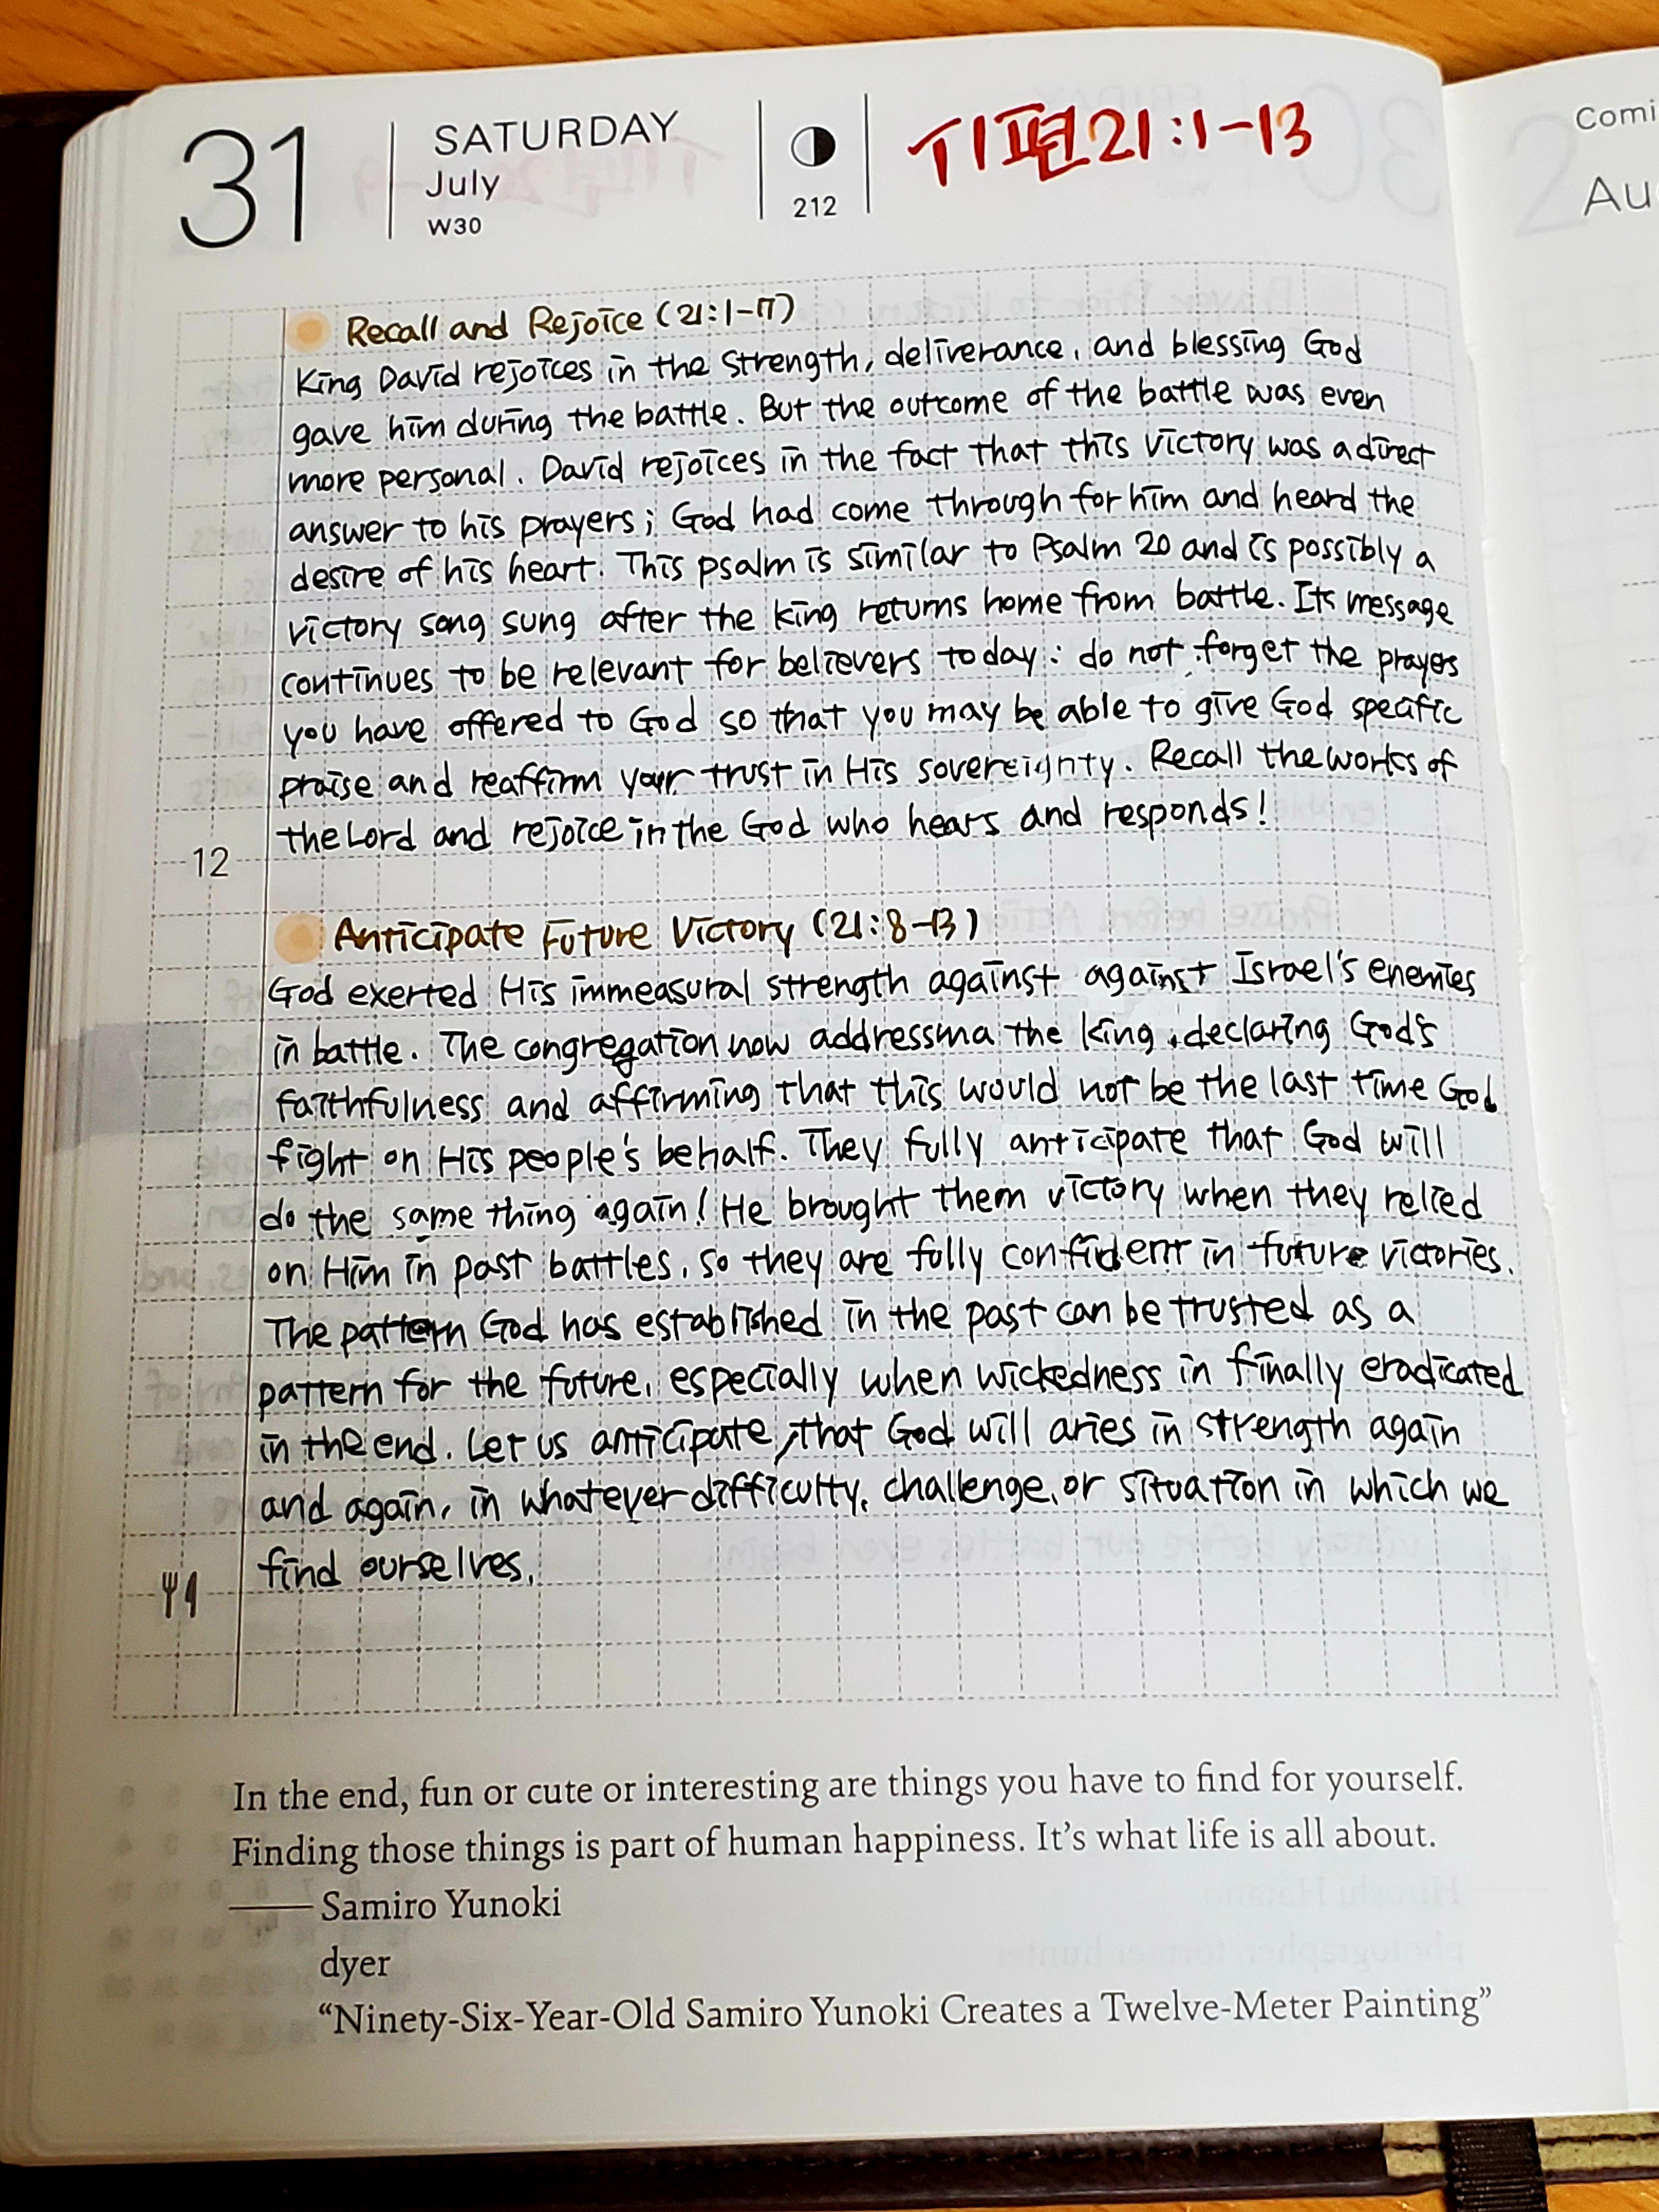 31
SATURDAY
July
W30
212
시편 21:1-13
Comi
Au
Recall and Rejoice (21:1-7)
King David rejoices in the strength, deliverance, and blessing God
gave him during the battle. But the outcome of the battle was even
more personal. David rejoices in the fact that this victory was a direct
answer to his prayers; God had come through for him and heard the
desire of his heart. This psalm is similar to Psalm 20 and is possibly a
victory song sung after the king returns home from battle. Its message
continues to be relevant for believers today: do not forget the prayers
you have offered to God so that you may be able to give God specific
praise and reaffirm your trust in His sovereignty. Recall the works of
the Lord and rejoice in the God who hears and responds!
12
Anticipate Future Victory (21:8-13)
God exerted His immeasural strength against against Israel's enemies
in battle. The congregation now addressma the king, declaring God's
faithfulness and affirming that this would not be the last time God
fight on His people's behalf. They fully anticipate that God will
do the same thing again! He brought them victory when they relied
on Him in past battles, so they are fully confident in future victories.
The pattern God has established in the past can be trusted as a
pattern for the future, especially when wickedness in finally eradicated
in the end. Let us anticipate, that God will aries in strength again
and again, in whatever difficulty, challenge, or situation in which we
find ourselves.
In the end, fun or cute or interesting are things you have to find for yourself.
Finding those things is part of human happiness. It's what life is all about.
—— Samiro Yunoki
dyer
“Ninety-Six-Year-Old Samiro Yunoki Creates a Twelve-Meter Painting”